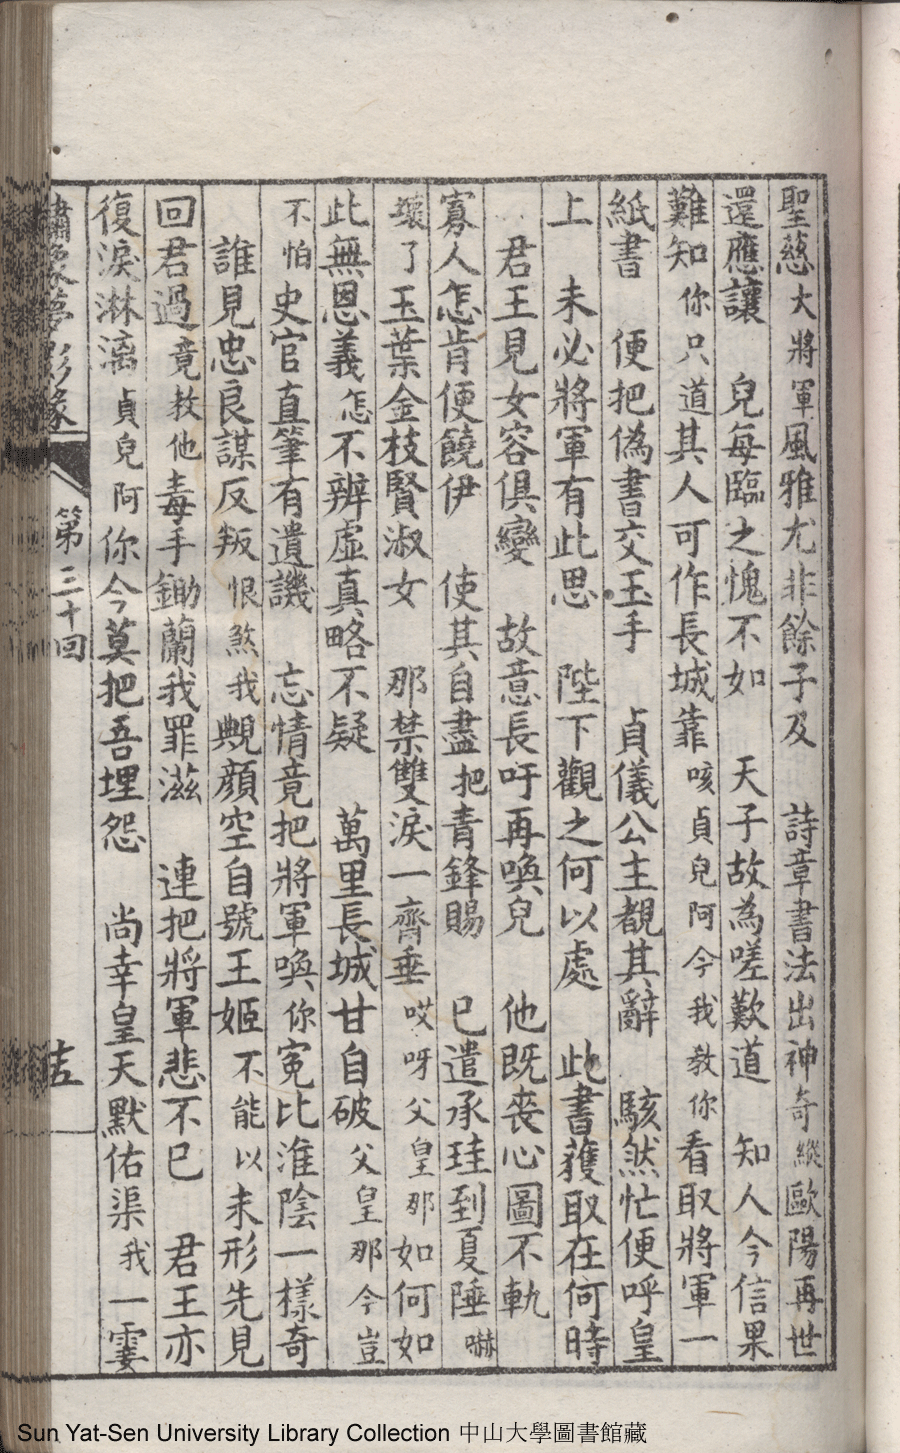 聖慈大將軍風雅尤非餘子及　詩章書法出神奇縱歐陽再世
還應讓　兒每臨之愧不如　天子故為嗟歎道　知人今信果
難知你只道其人可作長城靠咳貞兒阿今我教你看取將軍一
紙書　便把偽書交玉手　貞儀公主覩其辭　駭然忙便呼皇
上　未必將軍有此思　陛下觀之何以處　此書穫取在何時
君王見女容俱變　故意長吁再喚兒　他既喪心圖不軌
寡人怎肯便饒伊　使其自盡把青鋒賜　已遣承珪到夏陲嚇
壞了玉葉金枝賢淑女　那禁雙淚一齊垂哎呀父皇那如何如
此無恩義怎不辨虛真略不疑　萬里長城甘自破父皇那今豈
不怕史官直筆有遺譏　忘情竟把將軍喚你寃比淮陰一樣奇
誰見忠良謀反叛恨煞我覥顏空自號王姬不能以未形先見
回君過竟教他毒手鋤蘭我罪滋　連把將軍悲不已　君王亦
復淚淋漓貞兒阿你今莫把吾埋怨　尚幸皇天默佑渠我一霎
繡像夢影緣　第三十回
Sun Yat-Sen University Library Collection 中山大學圖書館藏